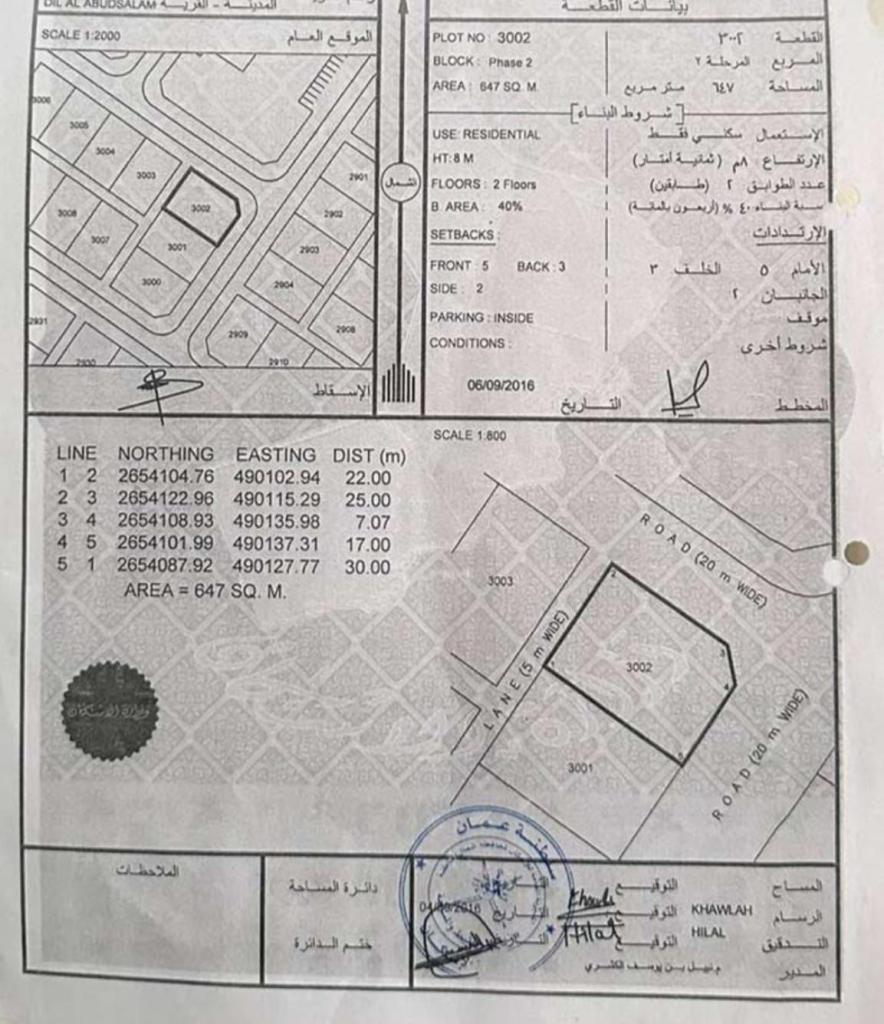 DIL AL ABUDSALAM المدينة - القرية
SCALE 1:2000 الموقع العام
3006
3005
3004
3003
3002
3008
3007
3001
3000
2901
2902
2903
2904
2931
2909
2908
2930
2910
الإسقاط
الشمال
بيانات القطعة
PLOT NO : 3002 القطعة ٣٠٠٢
BLOCK : Phase 2 المربع المرحلة ٢
AREA : 647 SQ. M. المساحة ٦٤٧ متر مربع
[شروط البناء]
USE: RESIDENTIAL الإستعمال سكني فقط
HT: 8 M الإرتفاع ٨م (ثمانية أمتار)
FLOORS : 2 Floors عدد الطوابق ٢ (طابقين)
B. AREA : 40% نسبة البناء ٤٠ % (أربعون بالمائة)
SETBACKS : الإرتدادات
FRONT : 5 BACK : 3 الأمام ٥ الخلف ٣
SIDE : 2 الجانبان ٢
PARKING : INSIDE موقف
CONDITIONS : شروط أخرى
06/09/2016
المخطط التاريخ
SCALE 1:800
LINE NORTHING EASTING DIST (m)
1 2 2654104.76 490102.94 22.00
2 3 2654122.96 490115.29 25.00
3 4 2654108.93 490135.98 7.07
4 5 2654101.99 490137.31 17.00
5 1 2654087.92 490127.77 30.00
AREA = 647 SQ. M.
ROAD (20 m WIDE)
3003
2
LANE (5 m WIDE)
3002
3
4
1
5
ROAD (20 m WIDE)
3001
وزارة الإسكان
سلطنة عمان
الملاحظات
دائرة المساحة
ختم الدائرة
المساح التوقيع التاريخ
الرسام KHAWLAH التوقيع Khawla التاريخ
التدقيق HILAL التوقيع Hilal
المدير م.نبيل بن يوسف الكندري